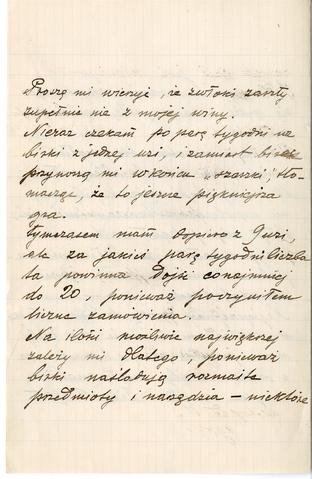 Proszę mi wierzyć, że zwłoki zaszły
zupełnie nie z mojej winy.
Nieraz czekam po parę tygodni na
birki z jednej wsi, i zamiast birek
przynoszą mi w końcu „szarki", tło-
macząc, że to jeszcze piękniejsza
gra.
Tymczasem mam dopiero z 9 wsi,
ale za jakieś parę tygodni liczba
ta powinna dojść conajmniej
do 20, ponieważ poczyniłem
liczne zamówienia.
Na ilości możliwie największej
zależy mi dlatego, ponieważ
birki naśladują rozmaite
przedmioty i narzędzia – niektóre